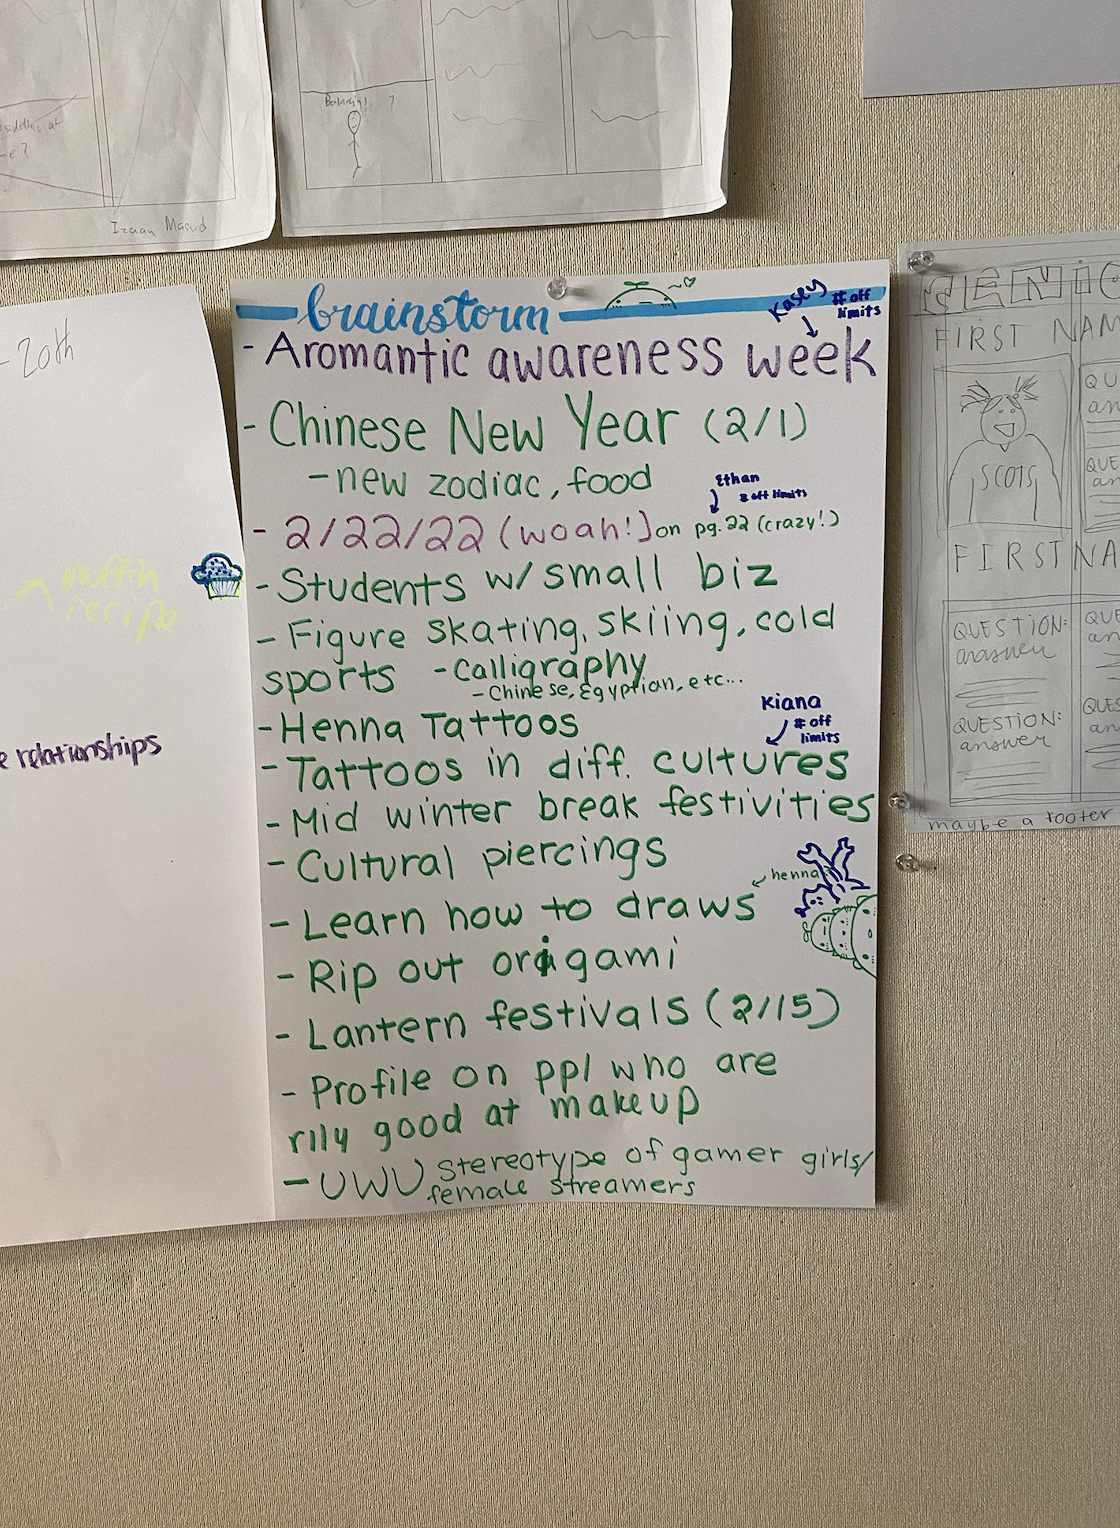 Izaan Masud
- 20th
muffin
recipe
relationships
brainstorm
Kasey # off
limits
- Aromantic awareness week
- Chinese New Year (2/1)
- new zodiac, food
Ethan
# off limits
- 2/22/22 (woah!) on pg. 22 (crazy!)
- Students w/ small biz
- Figure skating, skiing, cold
sports - Calligraphy
- Chinese, Egyptian, etc...
- Henna Tattoos
Kiana
# off
limits
- Tattoos in diff. cultures
- Mid winter break festivities
- Cultural piercings
henna
- Learn how to draws
- Rip out origami
- Lantern festivals (2/15)
- Profile on ppl who are
rlly good at makeup
- UWU stereotype of gamer girls/
female streamers
FIRST NAM
SCOTS
QU
an
QUE
an
FIRST NA
QUESTION:
answer
QUE
an
QUESTION:
answer
QUE
an
maybe a footer